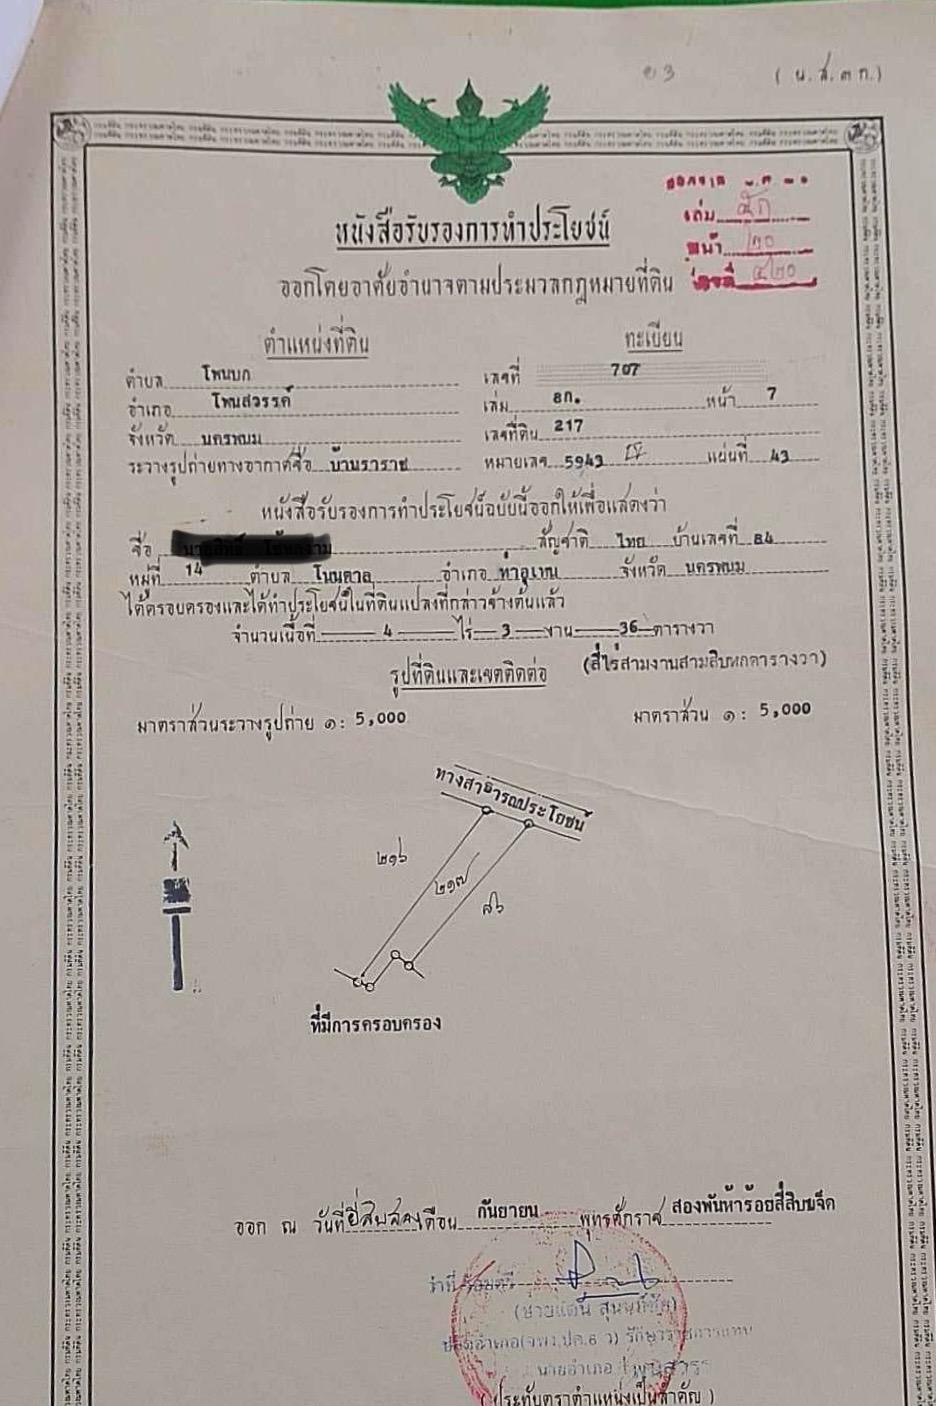 (น.ส.๓ ก.)
หนังสือรับรองการทำประโยชน์
เล่ม
หน้า ๒๐
ออกโดยอาศัยอำนาจตามประมวลกฎหมายที่ดิน
ตำแหน่งที่ดิน ทะเบียน
ตำบล โพนบก เลขที่ 707
อำเภอ โพนสวรรค์ เล่ม 8ก. หน้า 7
จังหวัด นครพนม เลขที่ดิน 217
ระวางรูปถ่ายทางอากาศชื่อ บ้านราราช หมายเลข 5943 IV แผ่นที่ 43
หนังสือรับรองการทำประโยชน์ฉบับนี้ออกให้เพื่อแสดงว่า
ชื่อ สัญชาติ ไทย บ้านเลขที่ 84
หมู่ที่ 14 ตำบล โนนตาล อำเภอ ท่าอุเทน จังหวัด นครพนม
ได้ครอบครองและได้ทำประโยชน์ในที่ดินแปลงที่กล่าวข้างต้นแล้ว
จำนวนเนื้อที่ 4 ไร่ 3 งาน 36 ตารางวา
(สี่ไร่สามงานสามสิบหกตารางวา)
รูปที่ดินและเขตติดต่อ
มาตราส่วนระวางรูปถ่าย ๑: 5,000 มาตราส่วน ๑: 5,000
ทางสาธารณประโยชน์
๒๑๖
๒๑๗
๘๖
ที่มีการครอบครอง
ออก ณ วันที่ยี่สิบสอง เดือน กันยายน พุทธศักราช สองพันห้าร้อยสี่สิบเจ็ด
ว่าที่ร้อยตรี
ปลัดอำเภอ(จพง.ปค.6 ว) รักษาราชการแทน
นายอำเภอโพนสวรรค์
(ประทับตราตำแหน่งเป็นสำคัญ)